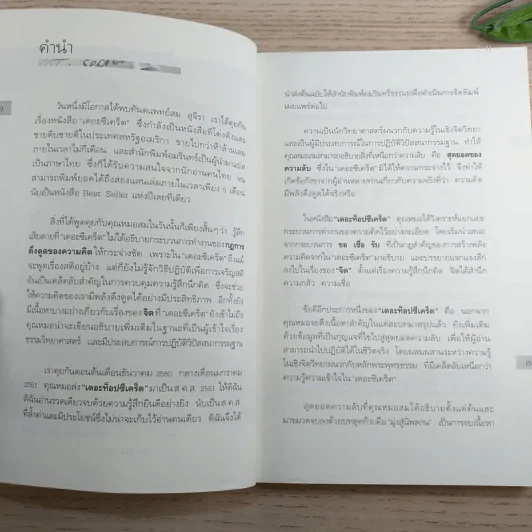 คำนำ
วันหนึ่งมีโอกาสได้พบทันตแพทย์สม สุจีรา เราได้คุยกัน
เรื่องหนังสือ "เดอะซีเคร็ต" ซึ่งกำลังเป็นหนังสือที่โด่งดังและ
ขายดิบขายดีในประเทศสหรัฐอเมริกา ขายไปกว่าห้าล้านเล่ม
ภายในเวลาไม่กี่เดือน และสำนักพิมพ์อมรินทร์เป็นผู้นำมาแปล
เป็นภาษาไทย ซึ่งก็ได้รับความสนใจจากนักอ่านคนไทย จน
สามารถพิมพ์ยอดได้ถึงสองแสนเล่มภายในเวลาเพียง ๆ เดือน
นับเป็นหนังสือ Best Seller แห่งปีเลยทีเดียว
สิ่งที่ได้พูดคุยกับคุณหมอสมในวันนั้นก็เพียงสั้นๆ ว่า รู้สึก
เสียดายที่ "เดอะซีเคร็ต" ไม่ได้อธิบายกระบวนการทำงานของกฎการ
ดึงดูดของความคิด ให้กระจ่างชัด เพราะใน "เดอะซีเคร็ต" ถึงแม้
จะพูดเรื่องสติอยู่บ้าง แต่ก็ยังไม่รู้จักวิธีปฏิบัติเพื่อการเจริญสติ
อันเป็นเคล็ดลับสำคัญในการควบคุมความรู้สึกนึกคิด ซึ่งจะช่วย
ให้ความคิดของเรามีพลังดึงดูดได้อย่างมีประสิทธิภาพ อีกทั้งยัง
มีเนื้อหาบางอย่างเกี่ยวกับเรื่องของจิตที่ "เดอะซีเคร็ต" ยังเข้าไม่ถึง
คุณหมอน่าจะเขียนอธิบายเพิ่มเติมในฐานะที่เป็นผู้เข้าใจเรื่อง
ธรรมวิทยาศาสตร์ และมีประสบการณ์การปฏิบัติวิปัสสนากรรมฐาน
เราคุยกันตอนต้นเดือนธันวาคม 2550 กลางเดือนมกราคม
2551 คุณหมอส่ง "เดอะท็อปซีเคร็ต" มาเป็น ส.ค.ส. 2551 ให้ดิฉัน
ดิฉันอ่านรวดเดียวจบด้วยความรู้สึกยินดีอย่างยิ่ง นับเป็น ส.ค.ส.
ที่ล้ำค่าและมีประโยชน์ซึ่งไม่น่าจะเก็บไว้อ่านคนเดียว ดิฉันจึงได้
นำส่งต้นฉบับให้สำนักพิมพ์อมรินทร์ธรรมะเพื่อดำเนินการจัดพิมพ์
เผยแพร่ต่อไป
ความเป็นนักวิทยาศาสตร์ผนวกกับความรู้ในเชิงจิตวิทยา
และเป็นผู้มีประสบการณ์ในการปฏิบัติวิปัสสนากรรมฐาน ทำให้
คุณหมอสมสามารถอธิบายสิ่งที่เหนือกว่าความลับ คือ สุดยอดของ
ความลับ ซึ่งใน "เดอะซีเคร็ต" มิได้ให้ความกระจ่างไว้ จึงทำให้
เกิดข้อกังขาจากผู้อ่านหลายท่านเกี่ยวกับความจริงที่ว่า ความคิด
มีพลังดึงดูดได้จริงหรือ
ในหนังสือ "เดอะท็อปซีเคร็ต" คุณหมอได้วิเคราะห์แยกแยะ
กระบวนการทำงานของความคิดไว้อย่างละเอียด โดยเริ่มนำเสนอ
จากกระบวนการ ขอ เชื่อ รับ ที่เป็นกฎสำคัญของการสร้างพลัง
ความคิดจากใน "เดอะซีเคร็ต" มาอธิบาย และบรรยายเจาะแจงลึก
ลงไปในเรื่องของ "จิต" ตั้งแต่เรื่องความรู้สึกนึกคิด จิตใต้สำนึก
ความกลัว ความเชื่อ
ข้อดีอีกประการหนึ่งของ "เดอะท็อปซีเคร็ต" คือ นอกจาก
คุณหมอจะดึงเนื้อหาสำคัญในแต่ละบทมาสรุปแล้ว ยังเพิ่มเติม
ด้วยข้อมูลที่เป็นกุญแจที่ไขไปสู่สุดยอดความลับ เพื่อให้ผู้อ่าน
สามารถนำไปปฏิบัติได้ในชีวิตจริง โดยผสมผสานระหว่างความรู้
ในเชิงจิตวิทยาผนวกกับหลักพระพุทธธรรม ที่มีเคล็ดลับเหนือกว่า
ความรู้ความเข้าใจใน "เดอะซีเคร็ต"
สุดยอดความลับที่คุณหมอสมได้อธิบายตั้งแต่ต้นและ
มาขมวดจบลงด้วยบทสุดท้ายคือ "มุ่งสู่นิพพาน" เป็นการจบเนื้อหา